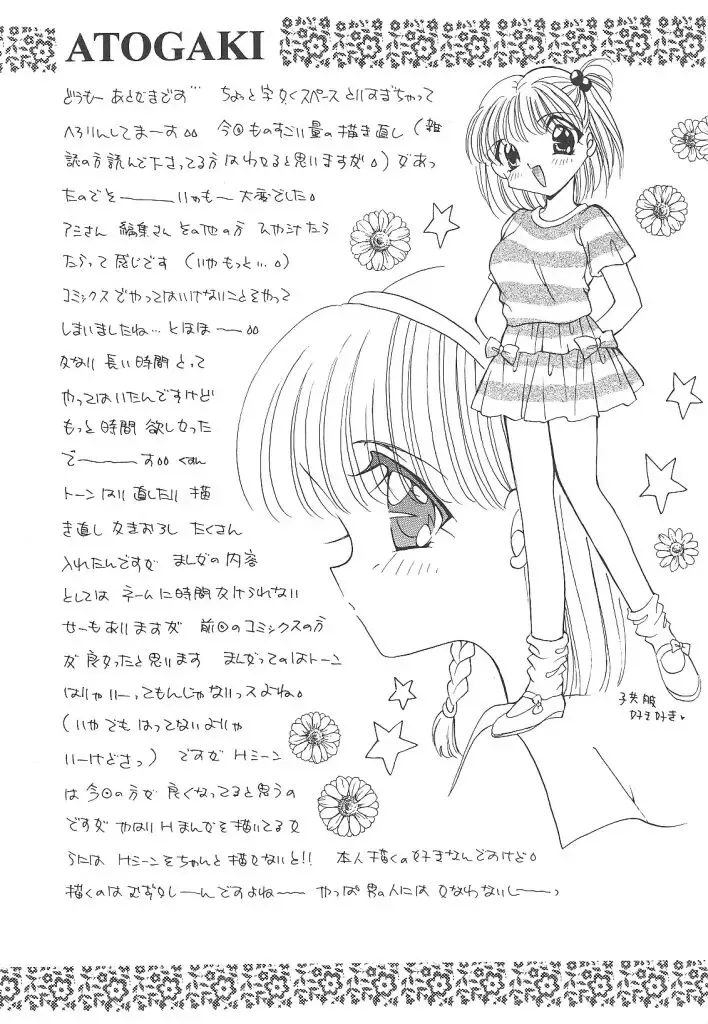 ATOGAKI
どうもー あとがきです… ちょっと字かくスペースとりすぎちゃって
へろりんしてまーす。。 今回ものすごい量の描き直し(雑
誌の方読んで下さってる方はわかると思いますが。)があっ
たのでそーーーいやも〜 大変でした。
アミさん 編集さん その他の方 ひやあせたら
たらって感じです (いやもっと…。)
コミックスでやってはいけないことをやって
しまいましたね… とほほーー。。
かなり 長い時間とって
やってはいたんですけど
もっと時間 欲しかった
でーーーーす。。
トーンはり直したり 描
き直し かきおろし たくさん
入れたんですが まんがの内容
としては ネームに時間かけられない
せーもありますが 前回のコミックスの方
が良かったと思います まんがってのはトーン
はりゃいーってもんじゃないっスよね。
(いや でも はってないよりゃ
いーけどさっ) ですが Hシーン
は今回の方が 良くなってると思うの
ですが やはり Hまんがを描いてるか
らには Hシーンをちゃんと描かないと!! 本人描くの好きなんですけど。
描くのはむずかしーんですよね〜 やっぱ男の人にはかなわないしーーっ
子供服
好き好き♥